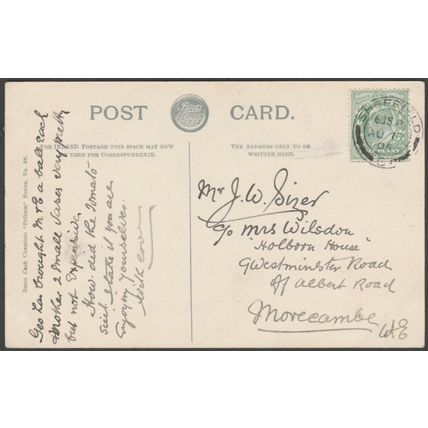 POST CARD.
Boots Cash Chemists
FOR INLAND POSTAGE THIS SPACE MAY NOW
BE USED FOR CORRESPONDENCE.
THE ADDRESS ONLY TO BE
WRITTEN HERE.
Boots Cash Chemists "Pelham" Series, No. 28.
Geo has brought M & E a ball each
Mother 2 small Vases very pretty
but not Expensive.
How did the tomato
suit & take it you are
Enjoying yourselves
with love
SHEFFIELD
AU 17
05
Mr J. W. Sizer
c/o Mrs Wilsdon
"Holborn House"
9 Westminster Road
off Albert Road
Morecambe